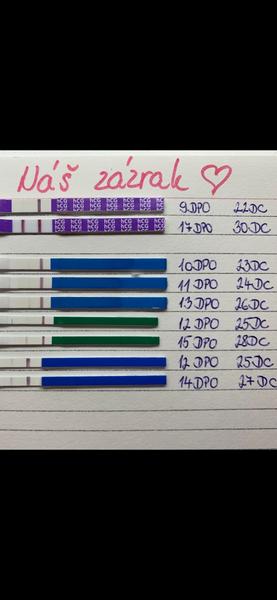 Náš zázrak ♡
hCG hCG hCG hCG hCG hCG hCG 9DPO 22DC
hCG hCG hCG hCG hCG hCG hCG 17DPO 30DC
10DPO 23DC
11DPO 24DC
13DPO 26DC
12DPO 25DC
15DPO 28DC
12DPO 25DC
14DPO 27DC